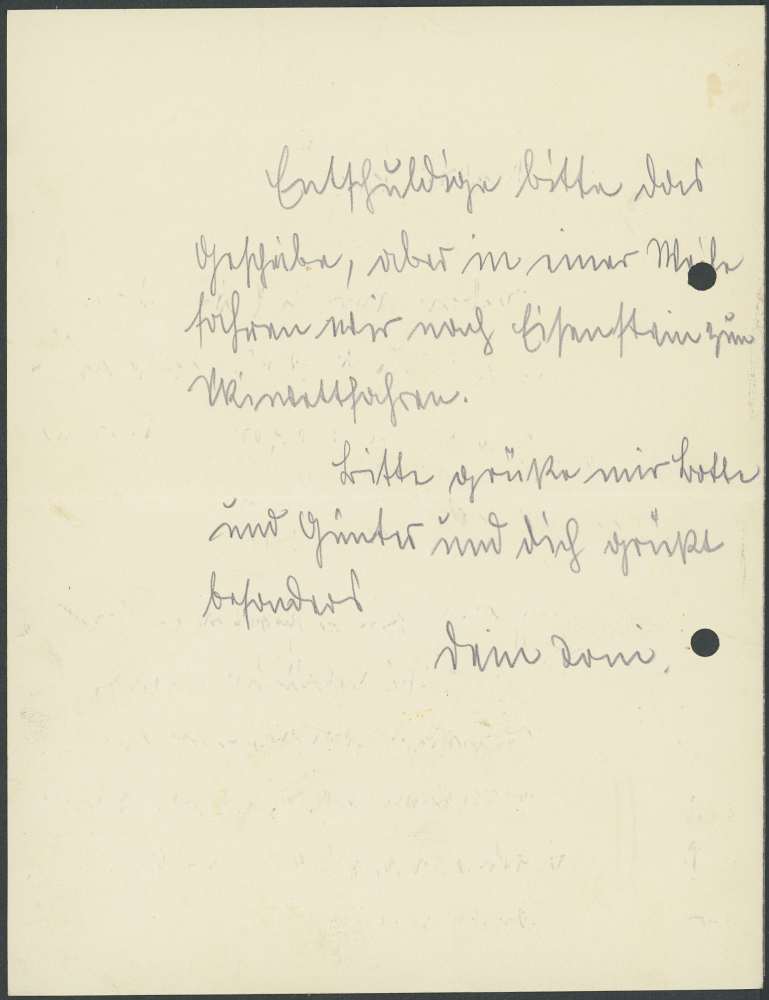 Entschuldige bitte das
Geschribe, aber in einer Woche
fahren wir nach Eisenstein zum
Skiwettfahren.
Bitte grüße mir Lotte
und Günter und dich grüßt
besonders
Dein Toni.